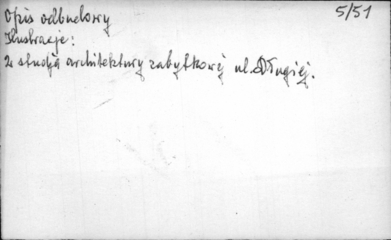 Opis odbudowy
5/51
Ilustracje:
2 studja architektury zabytkowej ul. Długiej.